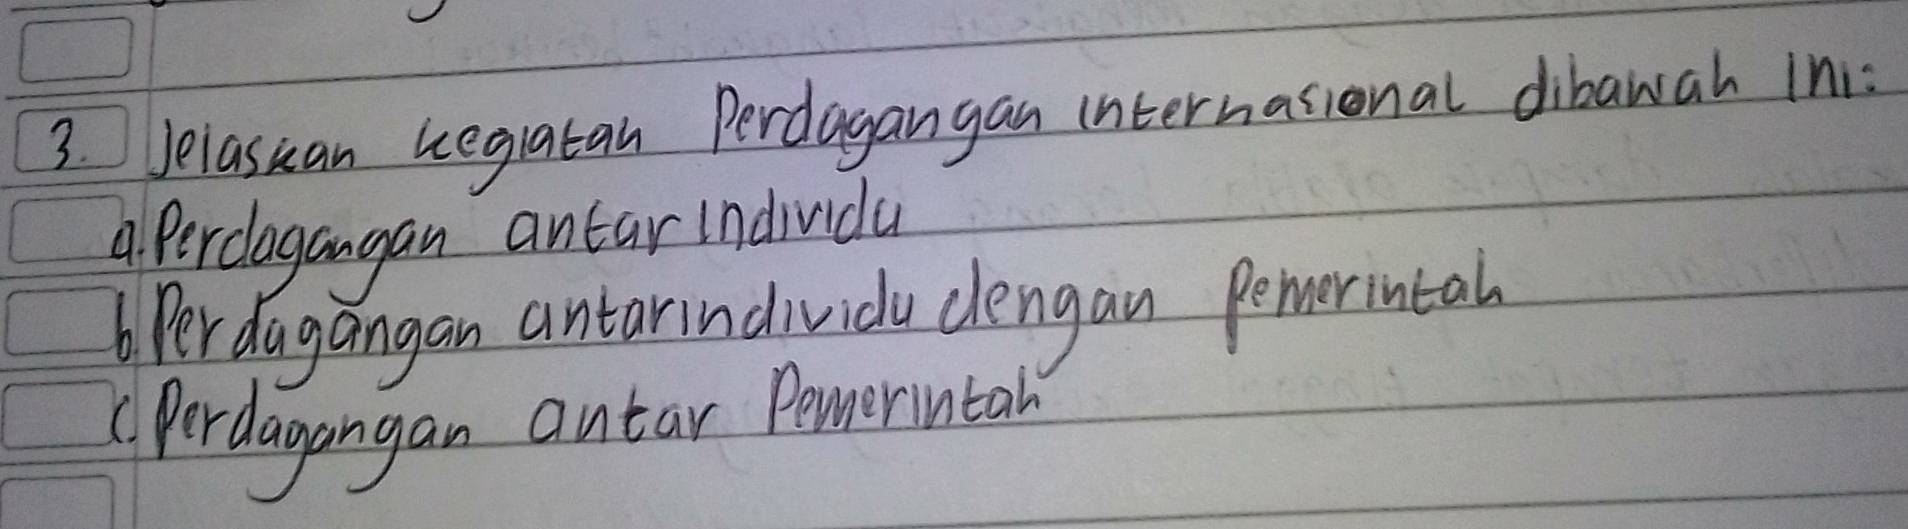 3. Jelaskan kegiatan Perdagangan internasional dibawah ini:
a. Perdagangan antar individu
b. Perdagangan antarindividu dengan Pemerintah
c. Perdagangan antar Pemerintah